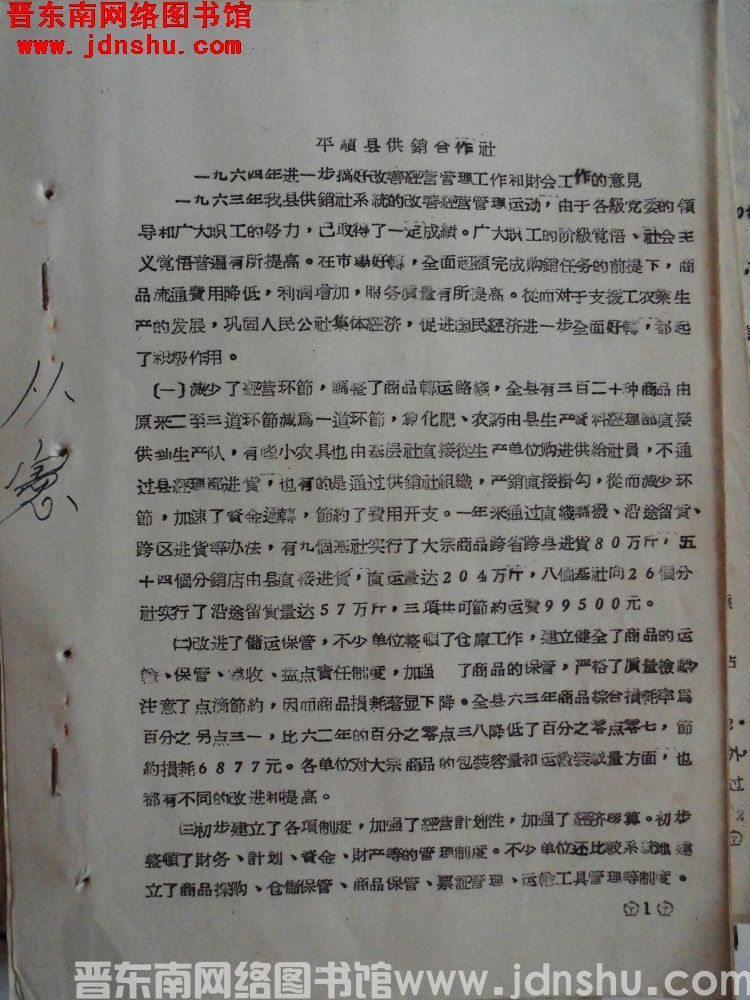 晋东南网络图书馆
www.jdnshu.com
平順县供銷合作社
一九六四年进一步搞好改善經营管理工作和財会工作的意見
一九六三年我县供銷社系統的改善經营管理运动，由于各級党委的領
导和广大职工的努力，己取得了一定成績。广大职工的阶級覚悟、社会主
义覚悟普遍有所提高。在市場好轉，全面超額完成购銷任务的前提下，商
品流通費用降低，利潤增加，服务质量有所提高。從而对于支援工农业生
产的发展，巩固人民公社集体經济，促进国民經济进一步全面好轉，都起
了积极作用。
(一)減少了經营环節，調整了商品轉运路綫，全县有三百二十种商品由
原来二至三道环節減爲一道环節，象化肥、农葯由县生产資料經理部直接
供到生产队，有些小农具也由基层社直接從生产单位购进供給社員，不通
过县經理部进貨，也有的是通过供銷社組織，产銷直接掛勾，從而減少环
節，加速了資金週轉，節約了費用开支。一年来通过直綫調撥、沿途留貨、
跨区进貨等办法，有九個基社实行了大宗商品跨省跨县进貨80万斤，五
十四個分銷店由县直接进貨，直运量达204万斤，八個基社向26個分
社实行了沿途留貨量达57万斤，三項共可節約运費99500元。
(二)改进了儲运保管，不少单位整頓了仓庫工作，建立健全了商品的运
輸、保管、驗收、盘点責任制度，加強 了商品的保管，严格了质量檢驗
注意了点滴節約，因而商品損耗著显下降。全县六三年商品綜合損耗率爲
百分之另点三一，比六二年的百分之零点三八降低了百分之零点零七，節
約損耗6877元。各单位对大宗商品的包装容量和运輸装載量方面，也
都有不同的改进和提高。
(三)初步建立了各項制度，加強了經营計划性，加強了經济核算。初步
整頓了財务、計划、資金、財产等的管理制度。不少单位还比較系統地建
立了商品採购、仓儲保管、商品保管、票証管理、运輸工具管理等制度。
1
晋东南网络图书馆www.jdnshu.com